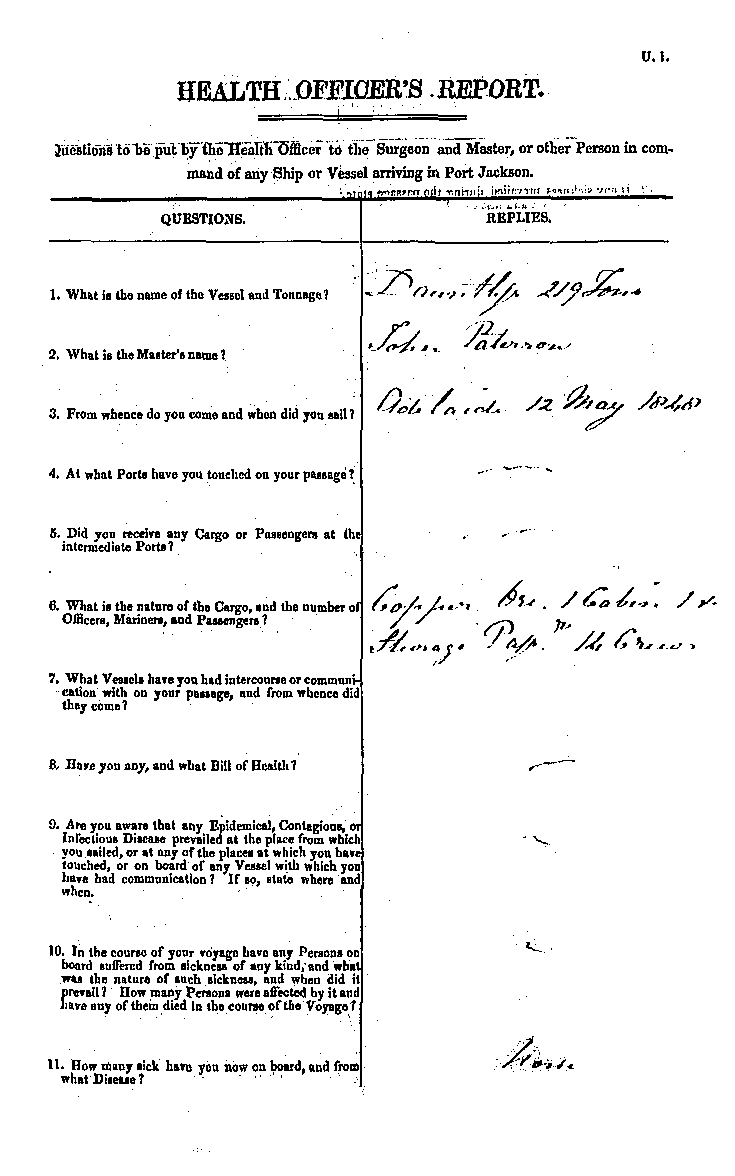 U. 1.
HEALTH OFFICER'S REPORT.
Questions to be put by the Health Officer to the Surgeon and Master, or other Person in com-
mand of any Ship or Vessel arriving in Port Jackson.
QUESTIONS.
REPLIES.
1. What is the name of the Vessel and Tonnage?
219 Tons
2. What is the Master's name?
John Paterson
3. From whence do you come and when did you sail?
Adelaide 12 May 1848
4. At what Ports have you touched on your passage?
5. Did you receive any Cargo or Passengers at the
intermediate Ports?
6. What is the nature of the Cargo, and the number of
Officers, Mariners, and Passengers?
Copper Ore. 1 Cabin. 1
Steerage Passr 14 Crew.
7. What Vessels have you had intercourse or communi-
cation with on your passage, and from whence did
they come?
8. Have you any, and what Bill of Health?
9. Are you aware that any Epidemical, Contagious, or
Infectious Disease prevailed at the place from which
you sailed, or at any of the places at which you have
touched, or on board of any Vessel with which you
have had communication? If so, state where and
when.
10. In the course of your voyage have any Persons on
board suffered from sickness of any kind, and what
was the nature of such sickness, and when did it
prevail? How many Persons were affected by it and
have any of them died in the course of the Voyage?
11. How many sick have you now on board, and from
what Disease?
None